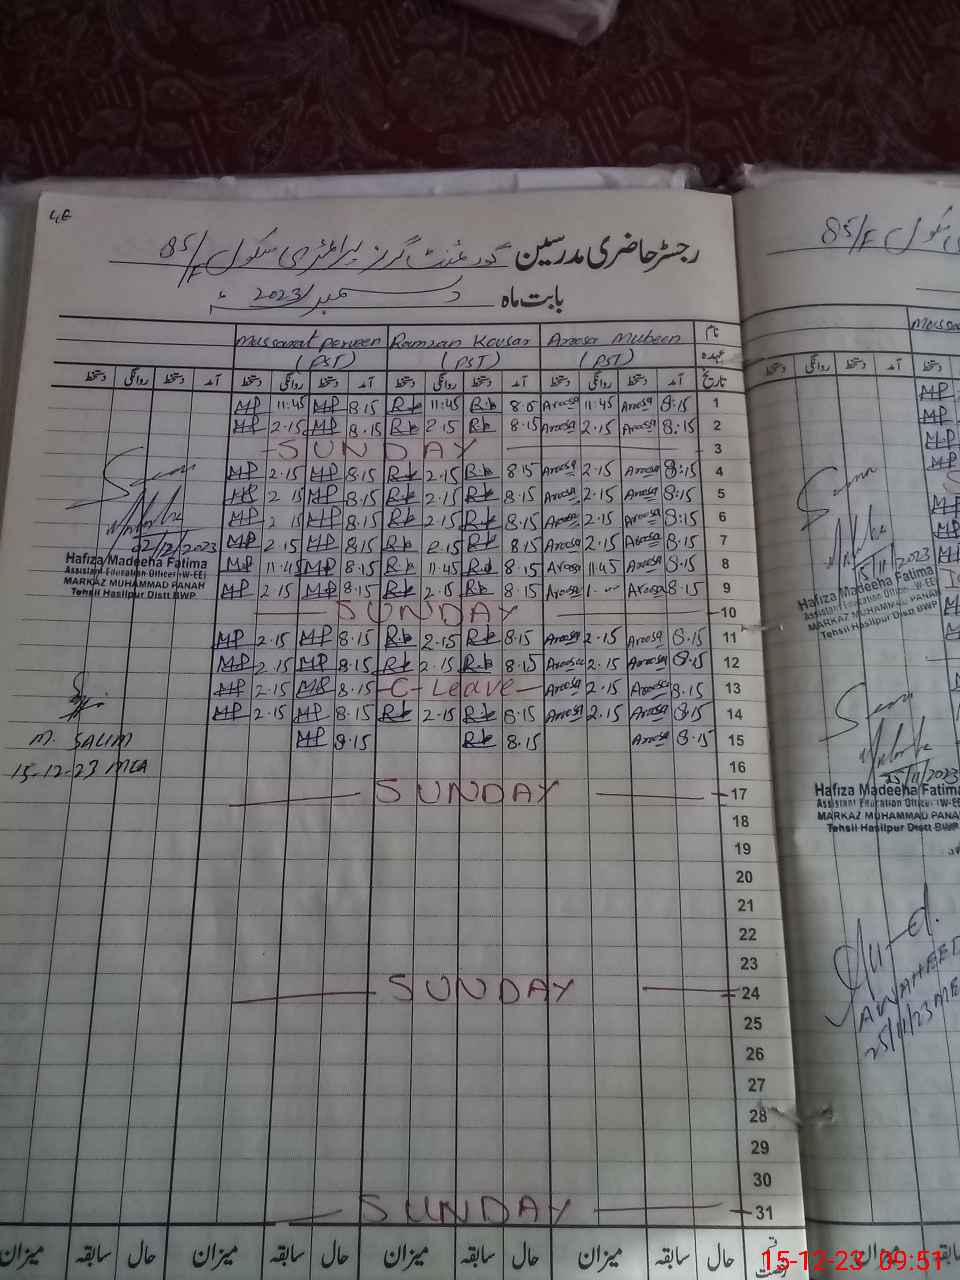 رجسٹر حاضری مدرسین گورنمنٹ گرلز پرائمری سکول 85/F
بابت ماہ دسمبر 2023ء
نام Aroosa Mubeen Ramzan Kousar Mussarat Perveen
عہدہ (PST) (PST) (PST)
تاریخ آمد دستخط روانگی دستخط آمد دستخط روانگی دستخط آمد دستخط روانگی دستخط آمد دستخط روانگی دستخط
MP 11:45 MP 8.15 Rk 11:45 Rk 8.15 Aroosa 11:45 Aroosa 8:15 1
MP 2.15 MP 8.15 Rk 2.15 Rk 8.15 Aroosa 2.15 Aroosa 8:15 2
SUNDAY 3
MP 2.15 MP 8.15 Rk 2.15 Rk 8.15 Aroosa 2.15 Aroosa 8:15 4
MP 2 15 MP 8.15 Rk 2.15 Rk 8.15 Aroosa 2.15 Aroosa 8:15 5
MP 2 15 MP 8.15 Rk 2.15 Rk 8.15 Aroosa 2.15 Aroosa 8:15 6
MP 2.15 MP 8.15 Rk 2.15 Rk 8.15 Aroosa 2.15 Aroosa 8.15 7
MP 11:45 MP 8.15 Rk 11:45 Rk 8.15 Aroosa 11:45 Aroosa 8.15 8
MP 2.15 MP 8.15 Rk 2.15 Rk 8.15 Aroosa Aroosa 8.15 9
SUNDAY 10
MP 2.15 MP 8.15 Rk 2.15 Rk 8.15 Aroosa 2.15 Aroosa 8.15 11
MP 2.15 MP 8.15 Rk 2.15 Rk 8.15 Aroosa 2.15 Aroosa 8.15 12
MP 2.15 MP 8.15 C-Leave Aroosa 2.15 Aroosa 8.15 13
MP 2.15 MP 8.15 Rk 2.15 Rk 8.15 Aroosa 2.15 Aroosa 8.15 14
MP 8.15 Rk 8.15 Aroosa 8.15 15
16
SUNDAY 17
18
19
20
21
22
23
SUNDAY 24
25
26
27
28
29
30
SUNDAY 31
حال سابقہ میزان حال سابقہ میزان حال سابقہ میزان حال سابقہ میزان
02/12/2023
Hafiza Madeeha Fatima
Assistant Education Officer (W-EE)
MARKAZ MUHAMMAD PANAH
Tehsil Hasilpur Distt BWP
M. SALIM
15-12-23 MEA
85/F سکول
15/11/2023
Hafiza Madeeha Fatima
Assistant Education Officer (W-EE)
MARKAZ MUHAMMAD PANAH
Tehsil Hasilpur Distt BWP
25/11/2023
Hafiza Madeeha Fatima
Assistant Education Officer (W-EE)
MARKAZ MUHAMMAD PANAH
Tehsil Hasilpur Distt BWP
25/11/23
میزان سابقہ
15-12-23 09:51